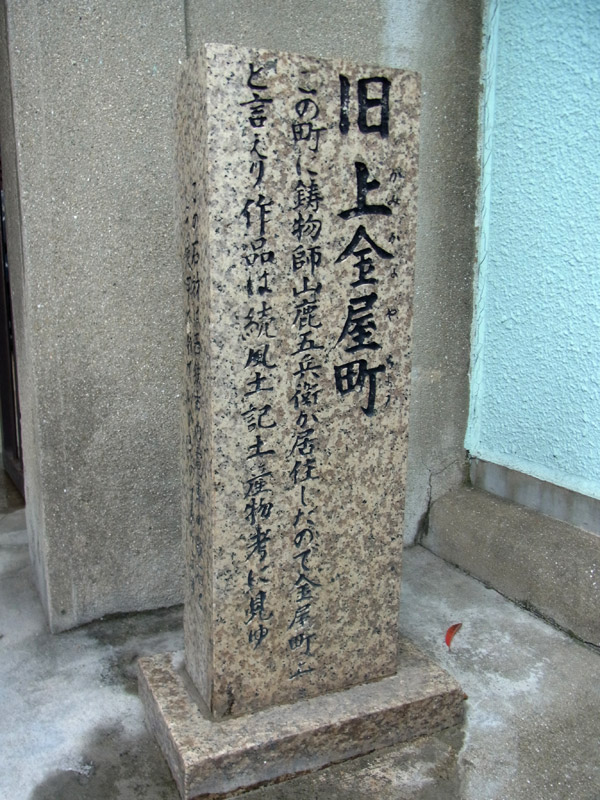 旧上金屋町
かみかなやちょう
この町に鋳物師山鹿五兵衛が居住したので金屋町
と言えり作品は続風土記土産物考に見ゆ